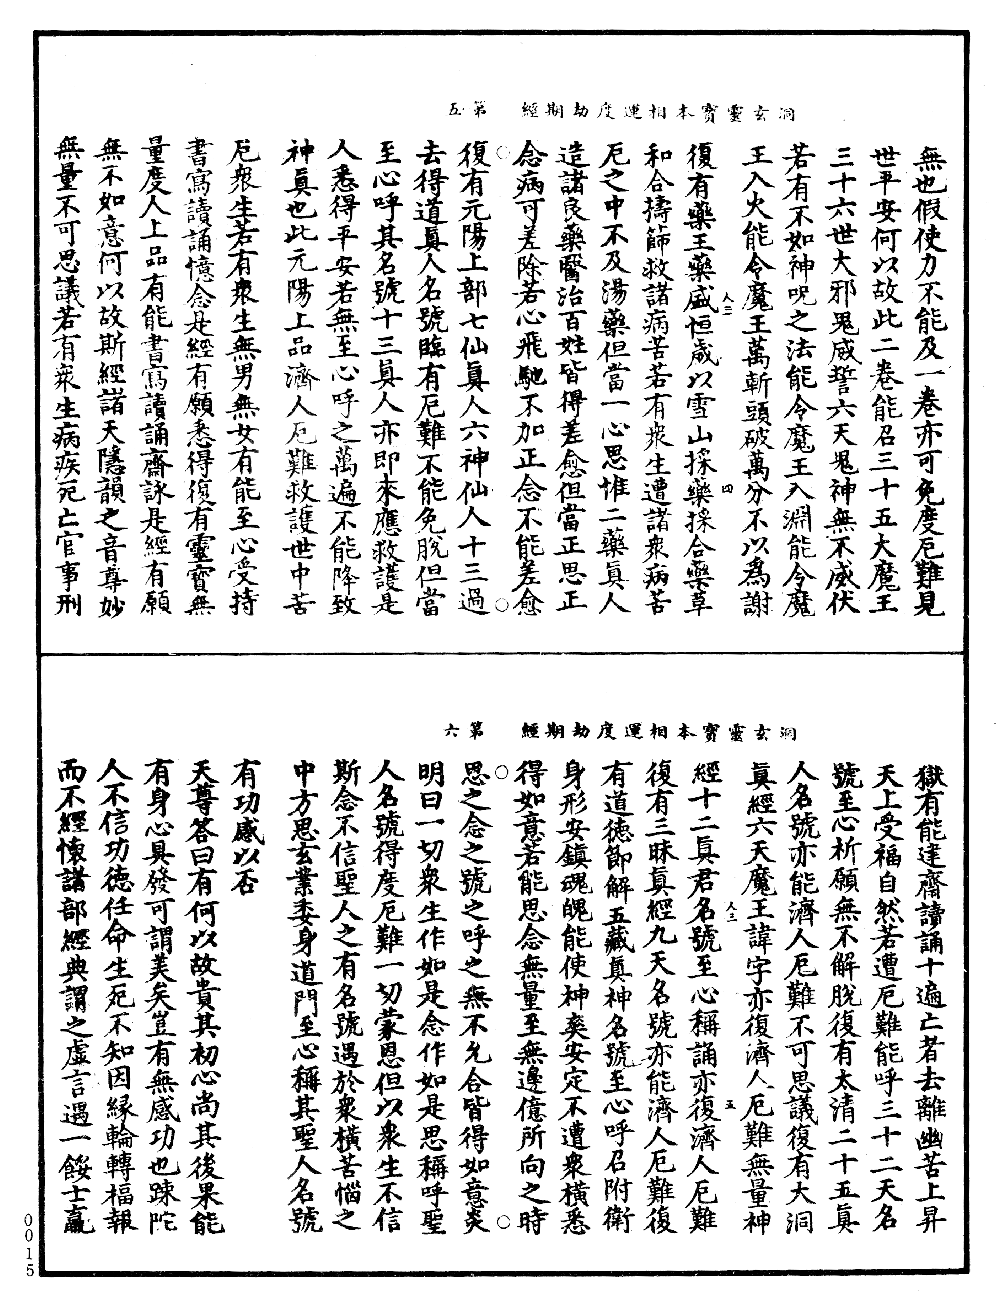 洞玄靈寶本相運度劫期經　第五
無也假使力不能及一卷亦可免度厄難見
世平安何以故此二卷能召三十五大魔王
三十六世大邪鬼咸誓六天鬼神無不威伏
若有不如神呪之法能令魔王入淵能令魔
王入火能令魔王萬斬頭破萬分不以為謝
復有藥王藥盛恒歲以雪山採藥採合藥草
人三
四
和合擣篩救諸病苦若有衆生遭諸衆病苦
厄之中不及湯藥但當一心思惟二藥真人
造諸良藥醫治百姓皆得差愈但當正思正
念病可差除若心飛馳不加正念不能差愈
復有元陽上部七仙真人六神仙人十三過
去得道真人名號臨有厄難不能免脫但當
至心呼其名號十三真人亦即來應救護是
人悉得平安若無至心呼之萬遍不能降致
神真也此元陽上品濟人厄難救護世中苦
厄衆生若有衆生無男無女有能至心受持
書寫讀誦憶念是經有願悉得復有靈寶無
量度人上品有能書寫讀誦齋詠是經有願
無不如意何以故斯經諸天隱韻之音尊妙
無量不可思議若有衆生病疾死亡官事刑
洞玄靈寶本相運度劫期經　第六
獄有能達齋讀誦十遍亡者去離幽苦上昇
天上受福自然若遭厄難能呼三十二天名
號至心祈願無不解脫復有太清二十五真
人名號亦能濟人厄難不可思議復有大洞
真經六天魔王諱字亦復濟人厄難無量神
經十二真君名號至心稱誦亦復濟人厄難
人三
五
復有三昧真經九天名號亦能濟人厄難復
有道德節解五藏真神名號至心呼召附衛
身形安鎮魂魄能使神爽安定不遭衆橫悉
得如意若能思念無量至無邊億所向之時
思之念之號之呼之無不允合皆得如意炎
明曰一切衆生作如是念作如是思稱呼聖
人名號得度厄難一切蒙恩但以衆生不信
斯念不信聖人之有名號遇於衆橫苦惱之
中方思玄業委身道門至心稱其聖人名號
有功感以否
天尊答曰有何以故貴其初心尚其後果能
有身心具發可謂美矣豈有無感功也踈陀
人不信功德任命生死不知因緣輪轉福報
而不經懷諸部經典謂之虛言遇一餒士羸
0015